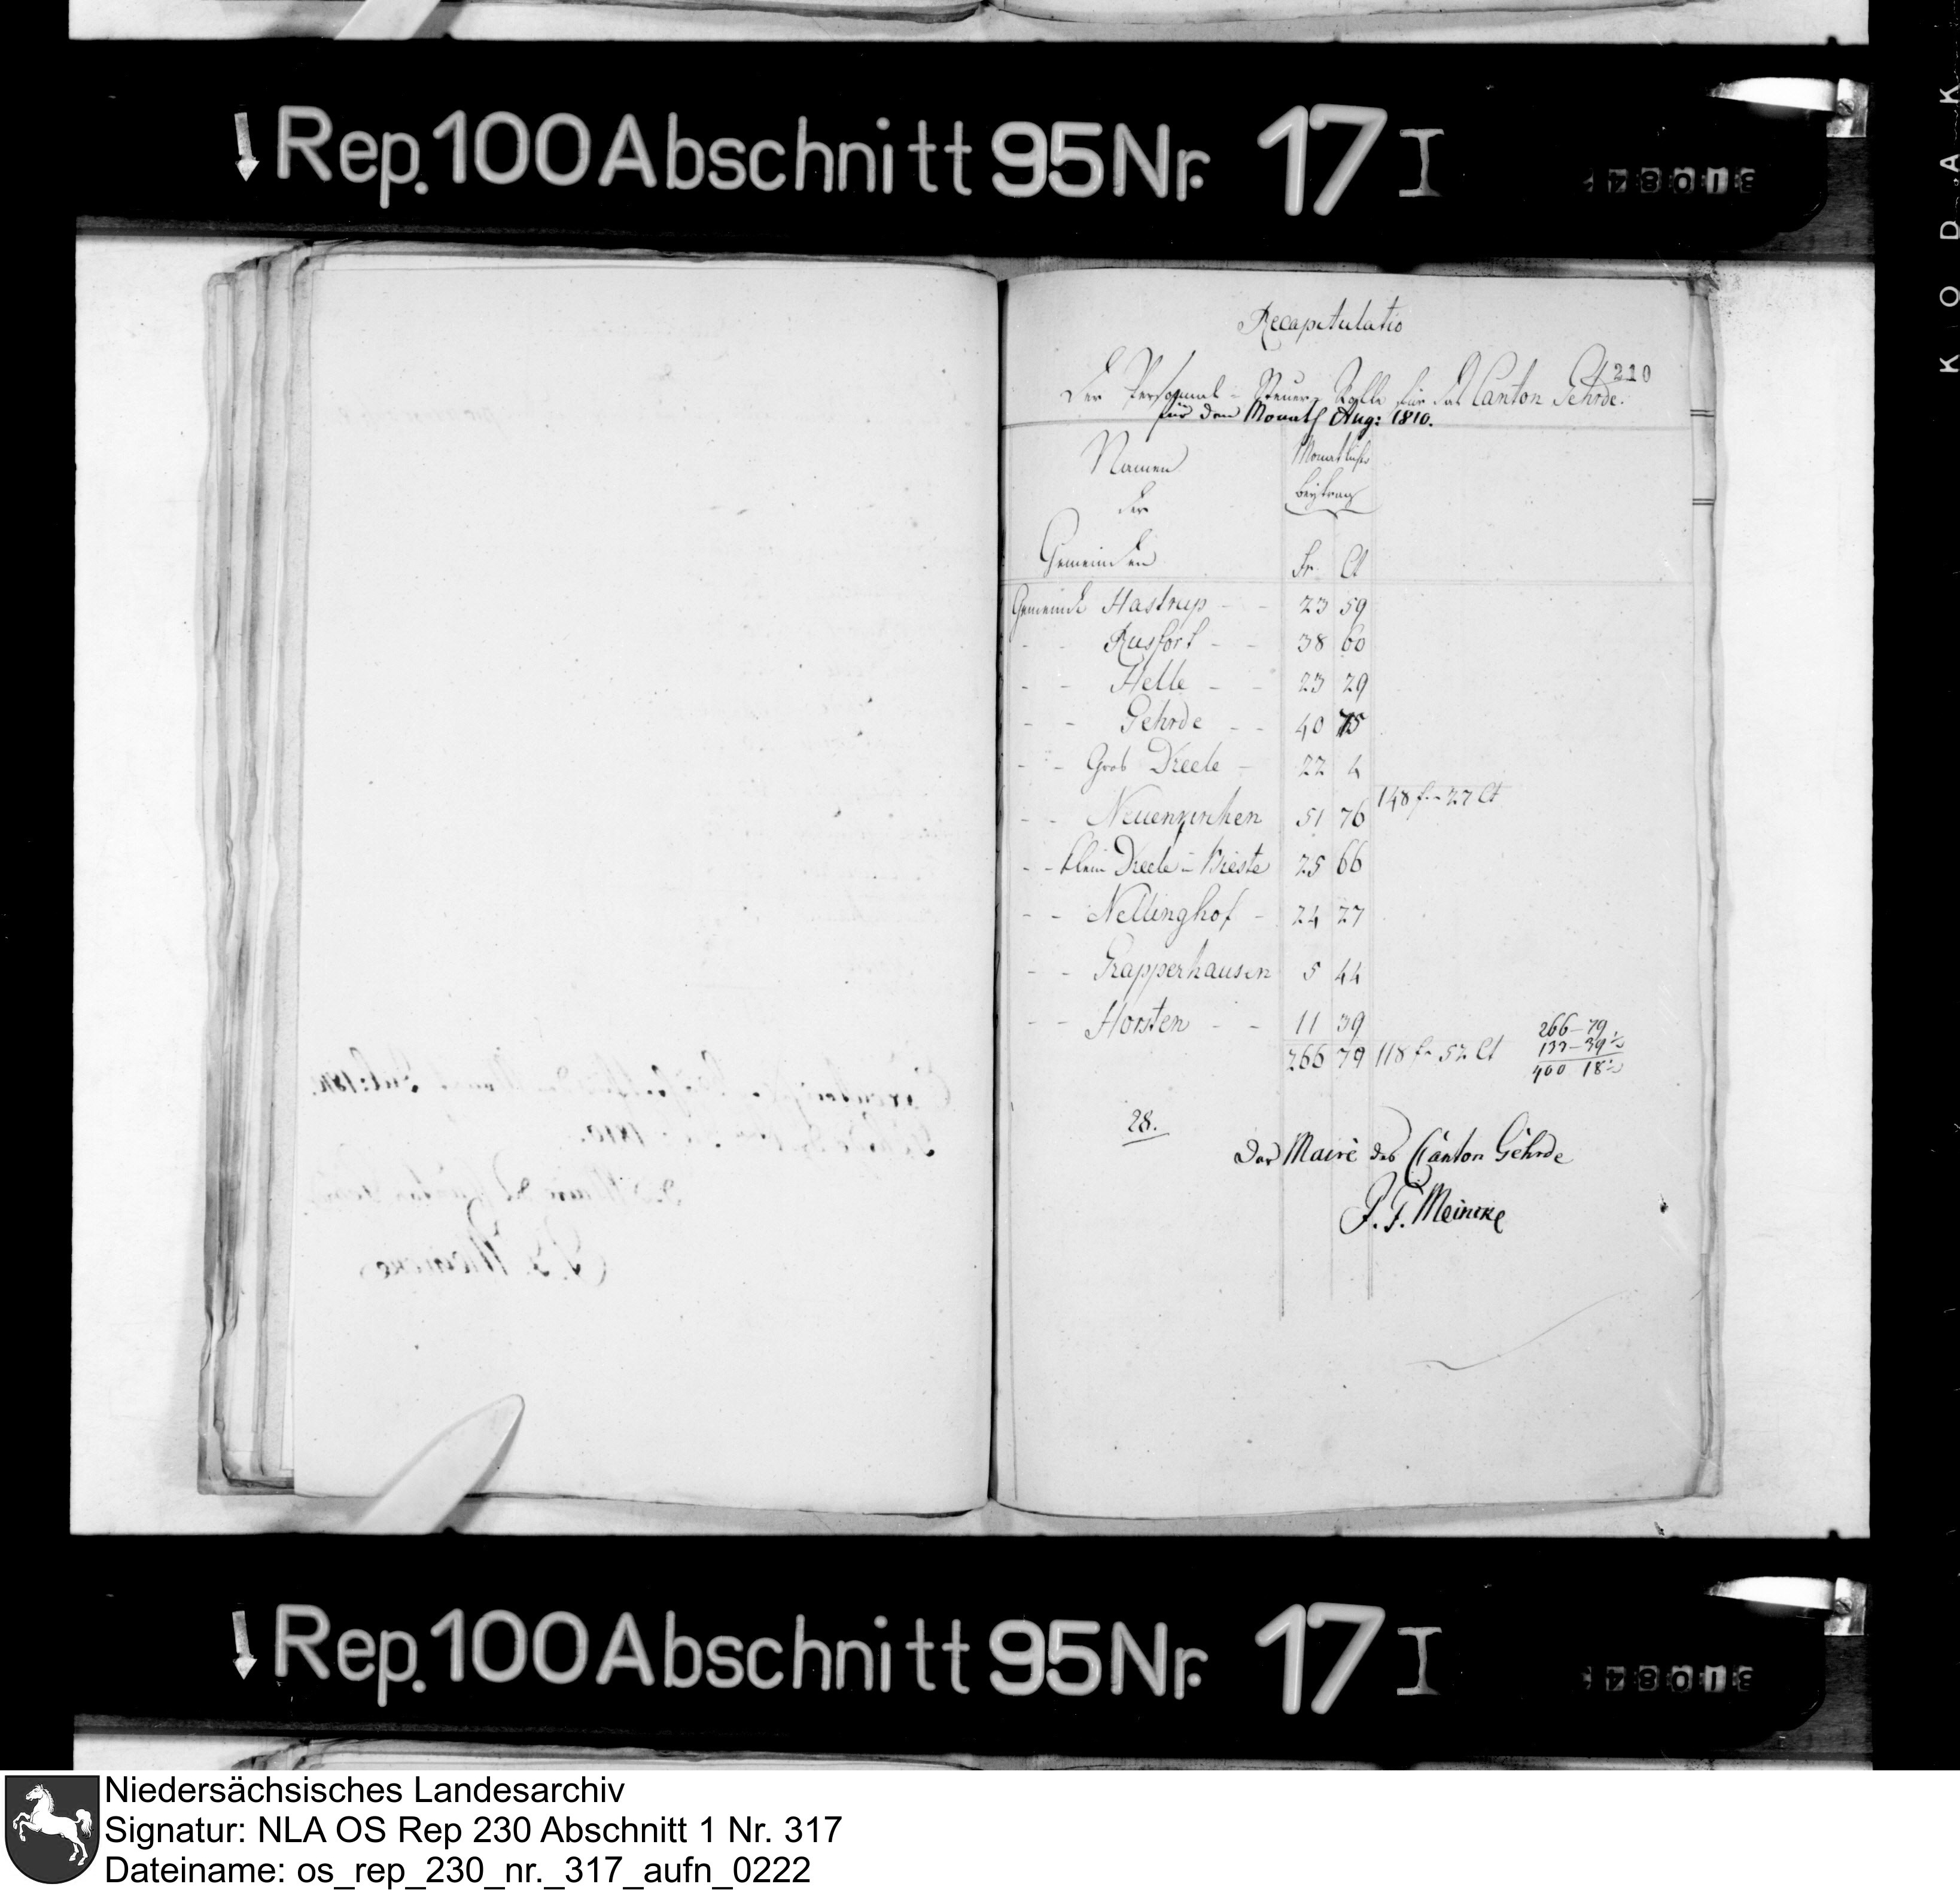 Rep. 100 Abschnitt 95 Nr. 17 I
31084
KODAK
Recapitulatio
210
Der Personal-Steuer-Rolle für das Canton Gehrde.
für den Monath Aug: 1810.
Namen
der
Gemeinden
Monatlicher
Beytrag
Fr. Ct
Gemeinde Hastrup - - 23 59
- - Rusfort - - 38 60
- - Helle - - 23 29
- - Gehrde - - 40 75
- - Gros Drele - 22 4
148 f. - 27 Ct
- - Neuenkirchen 51 76
- - klein Drele - Bieste 25 66
- - Nellinghof - 24 27
- - Grapperhausen 5 44
- - Horsten - - 11 39
266 79 118 fr 52 Ct
266-79.
133-39½
400 18½
28.
Der Maire des Canton Gehrde
J. F. Meincke
Rep. 100 Abschnitt 95 Nr. 17 I
31084
Niedersächsisches Landesarchiv
Signatur: NLA OS Rep 230 Abschnitt 1 Nr. 317
Dateiname: os_rep_230_nr._317_aufn_0222